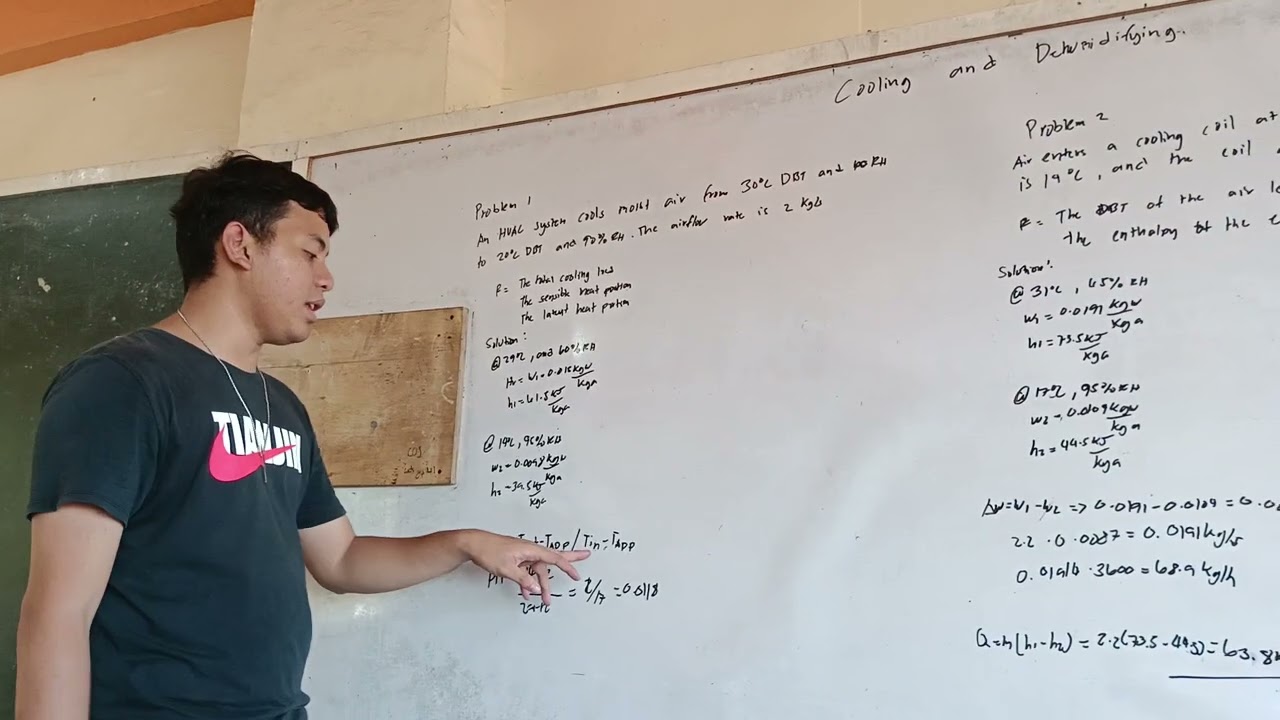 Cooling and Dehumidifying.
Problem 1
An HVAC system cools moist air from 30°C DBT and RH
to 20°C DBT and 90% RH. The airflow rate is 2 kg/s
R= The total cooling load
The sensible heat portion
The latent heat portion
Solution:
@ 29°C, and 60% RH
W1=0.015 kgw/kga
h1=61.5 kJ/kga
@ 19°C, 95% RH
w2=0.0098 kgw/kga
h2=39.5 kJ/kga
TADP/Tin-TADP
= 2/17 = 0.0118
TIANJIN
Problem 2
Air enters a cooling coil at
is 14°C, and the coil
R= The DBT of the air
the enthalpy of the
Solution:
@ 31°C, 45% RH
w1=0.0191 kgw/kga
h1=73.5 kJ/kga
@ 17°C, 95% RH
w2=0.0109 kgw/kga
h2=44.5 kJ/kga
Δw=w1-w2 => 0.0191-0.0109=0.00
2.2 · 0.0087 = 0.0191 kg/s
0.0191 · 3600 = 68.9 kg/h
Q=m(h1-h2) = 2.2(73.5-44.5)=63.8